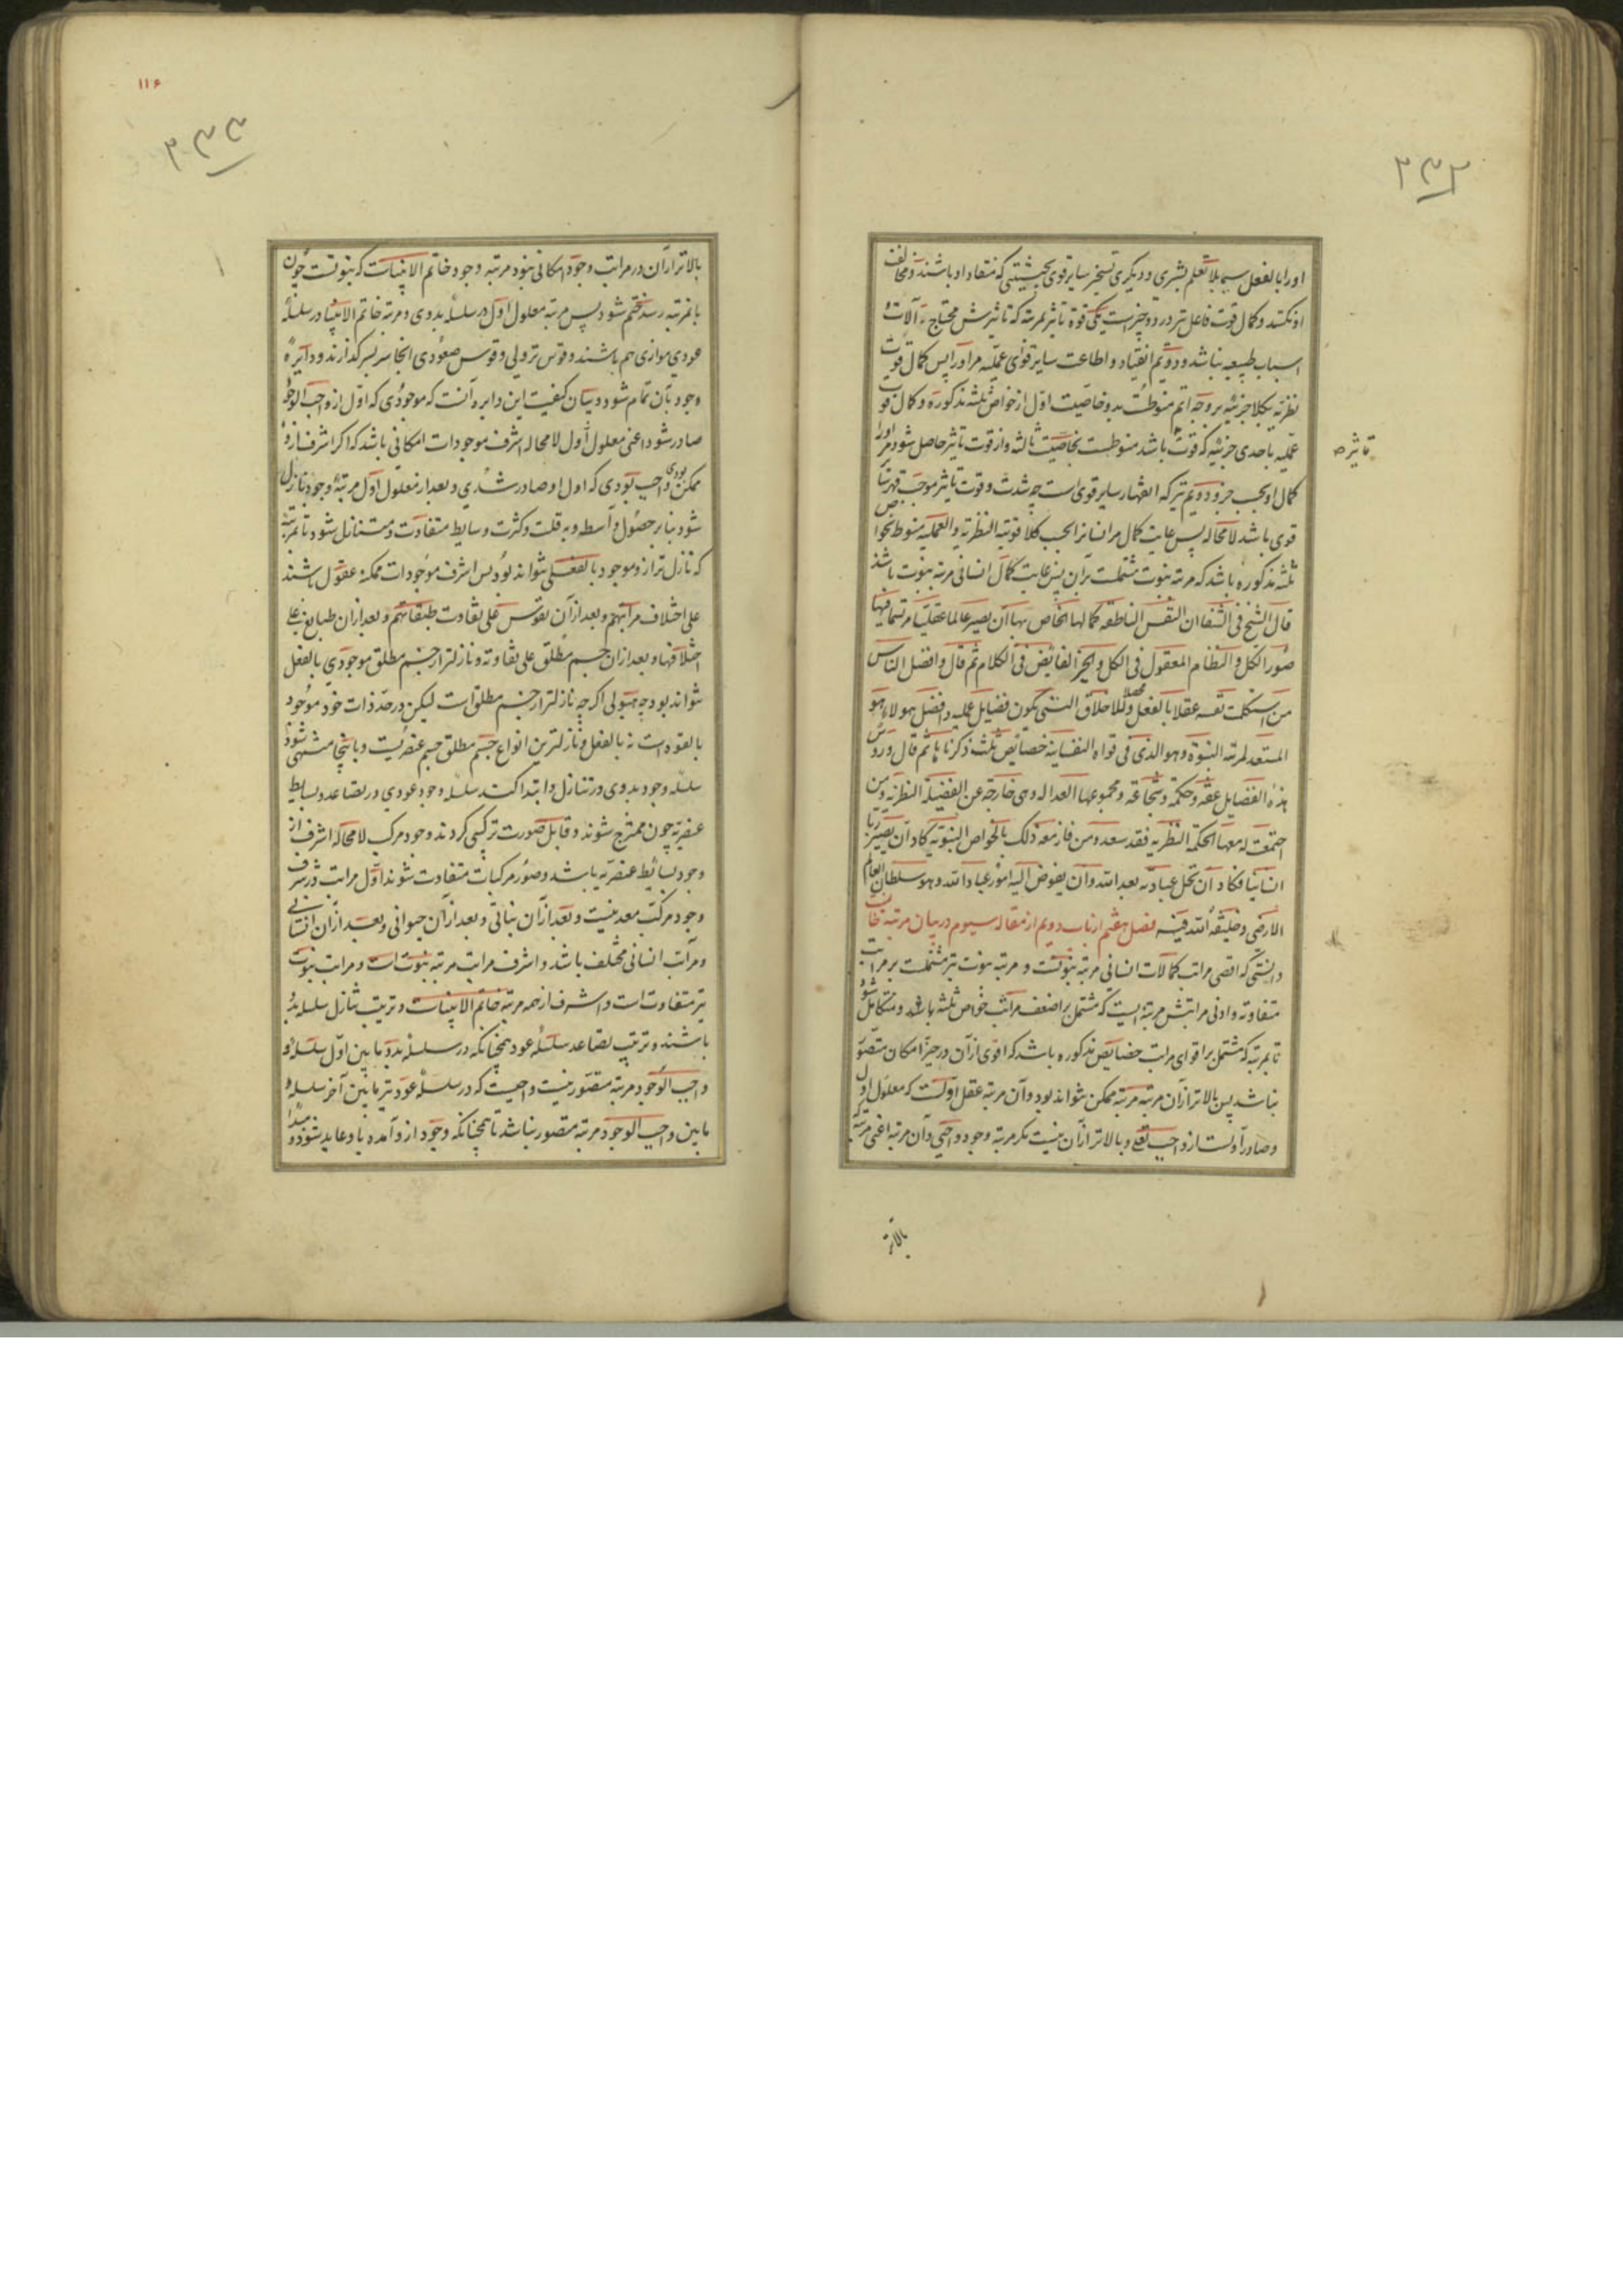 ۳۳۲
اورا بالفعل سیما بلا تعلم بشری و دیگری تسخیر سایر قوی بحیثیتی که منقاد او باشند و مخالفت
او نکنند و کمال قوت فاعل نیز در دو چیز است یکی قوة تاثیر بمرتبه که تاثیرش محتاج به آلات و
اسباب طبیعیه نباشد و دویم انقیاد و اطاعت سایر قوای عملیه مر او را پس کمال قوت
نظریه بکلا جزئیه بر وجه اتم منوطست بدو خاصیت اول از خواص ثلثه مذکوره و کمال قوت
عملیه باحدی جزئیه که قوت باشد منوطست بخاصیت ثالثه و از قوت تاثیر حاصل شود مر او را
تاثیر صح
کمال او بحسب جزو دویم نیز که انقهار سایر قوی است چه شدت و قوت تاثیر موجب قهر سایر
قوی باشد لا محاله پس غایت کمال مر انسانرا بحسب کلا قوتیه النظریه و العملیه منوط بخواص
ثلثه مذکوره باشد که مرتبه نبوت مشتملست بر آن پس غایت کمال انسانی مرتبه نبوت باشد
قال الشیخ فی الشفا ان النفس الناطقه کمالها الخاص بها ان یصیر عالما عقلیا مرتسما فیها
صور الکل و النظام المعقول فی الکل و الخیر الفایض فی الکل ثم قال و افضل الناس
من استکملت نفسه عقلا بالفعل و محصلا للاخلاق التی تکون فضایل عملیه و افضل هولاء هو
المستعد لمرتبه النبوة و هو الذی فی قواه النفسانیه خصایص ثلث ذکرناها ثم قال و رؤس
هذه الفضایل عفة و حکمة و شجاعة و مجموعها العداله و هی خارجة عن الفضیلة النظریه و من
اجتمعت له معها الحکمة النظریه فقد سعد و من فاز مع ذلک بالخواص النبویه کاد ان یصیر ربا
انسانیا فکاد ان تحل عبادته بعد الله و ان یفوض الیه امور عباد الله و هو سلطان العالم
الارضی و خلیفة الله فیه فصل هشتم از باب دویم از مقاله سیوم در بیان مرتبه خاتمیت
دانستی که اقصی مراتب کمالات انسانی مرتبه نبوتست و مرتبه نبوت نیز مشتملست بر مراتب
متفاوته و ادنی مراتبش مرتبه ایست که مشتمل بر اضعف مراتب خواص ثلثه باشد و متکامل شود
تا بمرتبه که مشتمل بر اقوای مراتب خصایص مذکوره باشد که اقوی از آن در حیز امکان متصور
نباشد پس بالاتر از آن مرتبه مرتبه ممکن نتواند بود و آن مرتبه عقل اولست که معلول اول
و صادر اولست از واجب تعالی و بالاتر از آن نیست مگر مرتبه وجود واجبی و آن مرتبه اعنی مرتبه که
بالاتر
۱۱۶
۳۳۳
بالاتر از آن در مراتب وجود امکانی نبود مرتبه وجود خاتم الانبیاست که نبوتست چون
بانمرتبه رسد ختم شود پس مرتبه معلول اول در سلسله بدوی و مرتبه خاتم الانبیا در سلسله
عودی موازی هم باشند و قوس نزولی و قوس صعودی انجا سر بسر گذارند و دایره
وجود بآن تمام شود و بیان کیفیت این دایره آنست که موجودی که اول از واجب الوجود
صادر شود اعنی معلول اول لا محاله اشرف موجودات امکانی باشد که اگر اشرف از و
ممکن بودی واجب بودی که اول او صادر شدی و بعد از معلول اول مرتبه وجود نازل
شود بنا بر حصول واسطه و به قلت و کثرت وسایط متفاوت و متنازل شود تا بمرتبه
که نازل تر از و موجود بالفعل نتواند بود پس اشرف موجودات ممکنه عقول باشند
علی اختلاف مراتبهم و بعد از آن نفوس علی تفاوت طبقاتهم و بعد از ان طبایع علی
اختلافها و بعد از ان جسم مطلق علی تفاوته و نازلتر از جسم مطلق موجودی بالفعل
نتواند بود چه هیولی اگر چه نازلتر از جسم مطلق است لیکن در حد ذات خود موجود
بالقوه است نه بالفعل و نازلترین انواع جسم مطلق جسم عنصریست و باینجا منتهی شود
سلسله وجود بدوی در تنازل و ابتدا کند سلسله وجود عودی در تصاعد و بسایط
عنصریه چون ممتزج شوند و قابل صورت ترکیبی گردند وجود مرکب لا محاله اشرف از
وجود بسایط عنصریه باشد و صور مرکبات متفاوت شوند اول مراتب در شرف
وجود مرکب معدنیست و بعد از آن نباتی و بعد از آن حیوانی و بعد از آن انسانی
و مراتب انسانی مختلف باشد و اشرف مراتب مرتبه نبوت است و مراتب نبوت
نیز متفاوت است و اشرف از همه مرتبه خاتم الانبیاست و ترتیب تنازل سلسله بدو
باشند و ترتیب تصاعد سلسله عود همچنانکه در سلسله بدو ما بین اول سلسله و
واجب الوجود مرتبه متصور نیست واجبست که در سلسله عود نیز ما بین آخر سلسله و
ما بین واجب الوجود مرتبه متصور نباشد تا همچنانکه وجود از و آمده باو عاید شود و مبدا